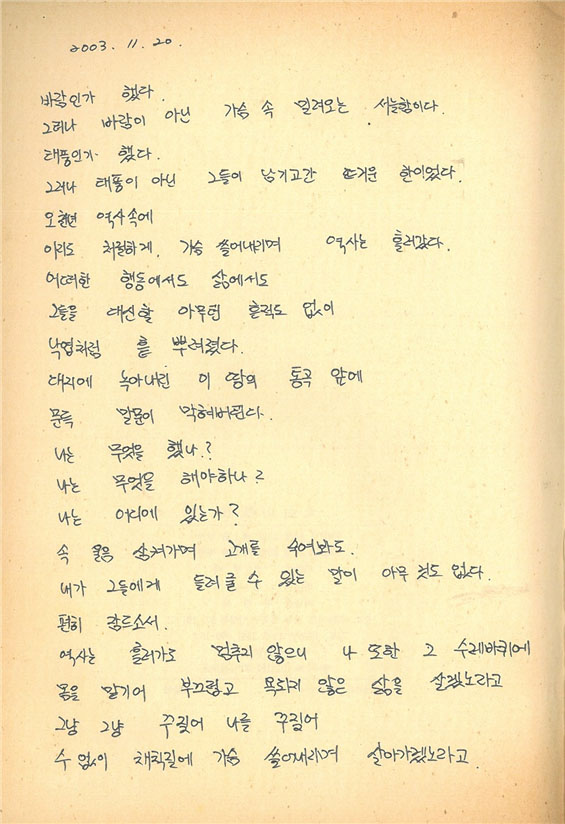 2003. 11. 20.
바람인가 했다.
그러나 바람이 아닌 가슴 속 밀려오는 서늘함이다.
태풍인가 했다.
그러나 태풍이 아닌 그들이 남기고간 뜨거운 한이었다.
오천년 역사속에
이리도 처절하게, 가슴 쓸어내리며 역사는 흘러갔다.
어떠한 행동에서도 삶에서도
그들을 대신할 아무런 흔적도 없이
낙엽처럼 흩 뿌려졌다.
대지에 녹아내린 이 땅의 통곡 앞에
문득 말문이 막혀버린다.
나는 무엇을 했나?
나는 무엇을 해야하나?
나는 어디에 있는가?
속 울음 삼켜가며 고개를 숙여봐도.
내가 그들에게 들려줄 수 있는 말이 아무 것도 없다.
편히 잠드소서.
역사는 흘러가도 멈추지 않으니 나 또한 그 수레바퀴에
몸을 맡기어 부끄럽고 욕되지 않은 삶을 살겠노라고
그냥 그냥 꾸짖어 나를 꾸짖어
수 없이 채찍질에 가슴 쓸어내리며 살아가겠노라고.